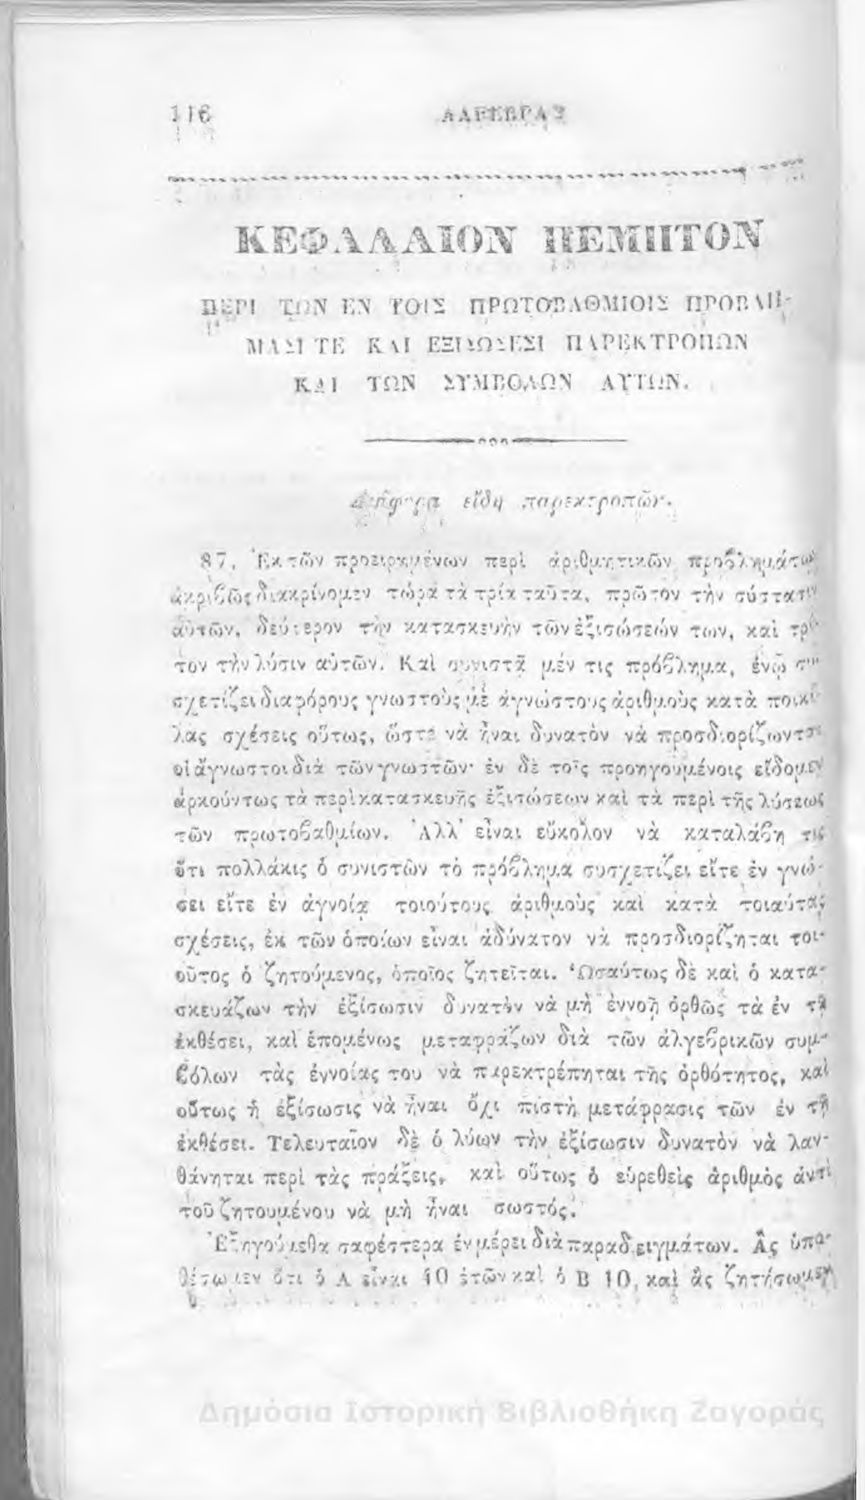 116 ΑΛΓΕΒΡΑΣ
ΚΕΦΑΛΑΙΟΝ ΠΕΜΠΤΟΝ
ΠΕΡΙ ΤΩΝ ΕΝ ΤΟΙΣ ΠΡΩΤΟΒΑΘΜΙΟΙΣ ΠΡΟΒΛΗ-
ΜΑΣΙ ΤΕ ΚΑΙ ΕΞΙΣΩΣΕΣΙ ΠΑΡΕΚΤΡΟΠΩΝ
ΚΑΙ ΤΩΝ ΣΥΜΒΟΛΩΝ ΑΥΤΩΝ.
Διάφορα εἴδη παρεκτροπῶν.
87. Ἐκ τῶν προειρημένων περὶ ἀριθμητικῶν προβλημάτων
ἀκριβῶς διακρίνομεν τώρα τὰ τρία ταῦτα, πρῶτον τὴν σύστασιν
αὐτῶν, δεύτερον τὴν κατασκευὴν τῶν ἐξισώσεών των, καὶ τρί-
τον τὴν λύσιν αὐτῶν. Καὶ συνιστᾷ μέν τις πρόβλημα, ἐνῷ συ-
σχετίζει διαφόρους γνωστοὺς μὲ ἀγνώστους ἀριθμοὺς κατὰ ποικί-
λας σχέσεις οὕτως, ὥστε νὰ ἦναι δυνατὸν νὰ προσδιορίζωνται
οἱ ἄγνωστοι διὰ τῶν γνωστῶν· ἐν δὲ τοῖς προηγουμένοις εἴδομεν
ἀρκούντως τὰ περὶ κατασκευῆς ἐξισώσεων καὶ τὰ περὶ τῆς λύσεως
τῶν πρωτοβαθμίων. Ἀλλ' εἶναι εὔκολον νὰ καταλάβῃ τις
ὅτι πολλάκις ὁ συνιστῶν τὸ πρόβλημα συσχετίζει εἴτε ἐν γνώ-
σει εἴτε ἐν ἀγνοίᾳ τοιούτους ἀριθμοὺς καὶ κατὰ τοιαύτας
σχέσεις, ἐκ τῶν ὁποίων εἶναι ἀδύνατον νὰ προσδιορίζηται τοι-
οῦτος ὁ ζητούμενος, ὁποῖος ζητεῖται. Ὡσαύτως δὲ καὶ ὁ κατα-
σκευάζων τὴν ἐξίσωσιν δυνατὸν νὰ μὴ ἐννοῇ ὀρθῶς τὰ ἐν τῇ
ἐκθέσει, καὶ ἑπομένως μεταφράζων διὰ τῶν ἀλγεβρικῶν συμ-
βόλων τὰς ἐγνοίας του νὰ παρεκτρέπηται τῆς ὀρθότητος, καὶ
οὕτως ἡ ἐξίσωσις νὰ ἦναι ὄχι πιστὴ μετάφρασις τῶν ἐν τῇ
ἐκθέσει. Τελευταῖον δὲ ὁ λύων τὴν ἐξίσωσιν δυνατὸν νὰ λαν-
θάνηται περὶ τὰς πράξεις, καὶ οὕτως ὁ εὑρεθεὶς ἀριθμὸς ἀντὶ
τοῦ ζητουμένου νὰ μὴ ἦναι σωστός.
Ἐξηγούμεθα σαφέστερα ἐν μέρει διὰ παραδειγμάτων. Ἂς ὑπο-
θέσωμεν ὅτι ὁ Α εἶναι 40 ἐτῶν καὶ ὁ Β 10, καὶ ἂς ζητήσωμεν
Δημόσια Ιστορική Βιβλιοθήκη Ζαγοράς